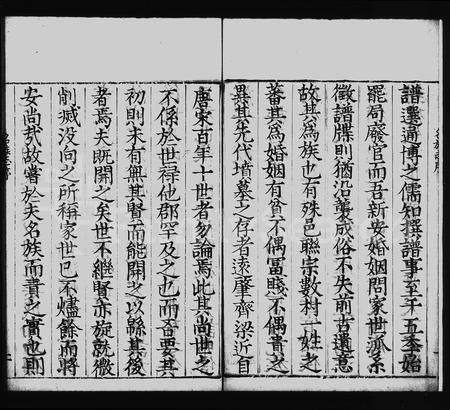 譜選通博之儒知撰譜事至于五季始
罷局廢官而吾新安婚姻問家世派系
徵譜牒則猶沿襲成俗不失前古遺意
故其為族也有殊邑聯宗數村一姓之
蕃其為婚姻有貧不偶富賤不偶貴之
異其先代墳墓之存者遠肇齊梁近自
唐宋百年十世者勿論焉此其尚世之
不係於世祿他郡罕及之也而奋要其
初則未有無其賢而能開之以緜其後
者焉夫既開之矣世不繼賢亦旋就微
削滅没向之所稱家世已不燼餘而將
安尚哉故嘗於夫名族而責之實也則